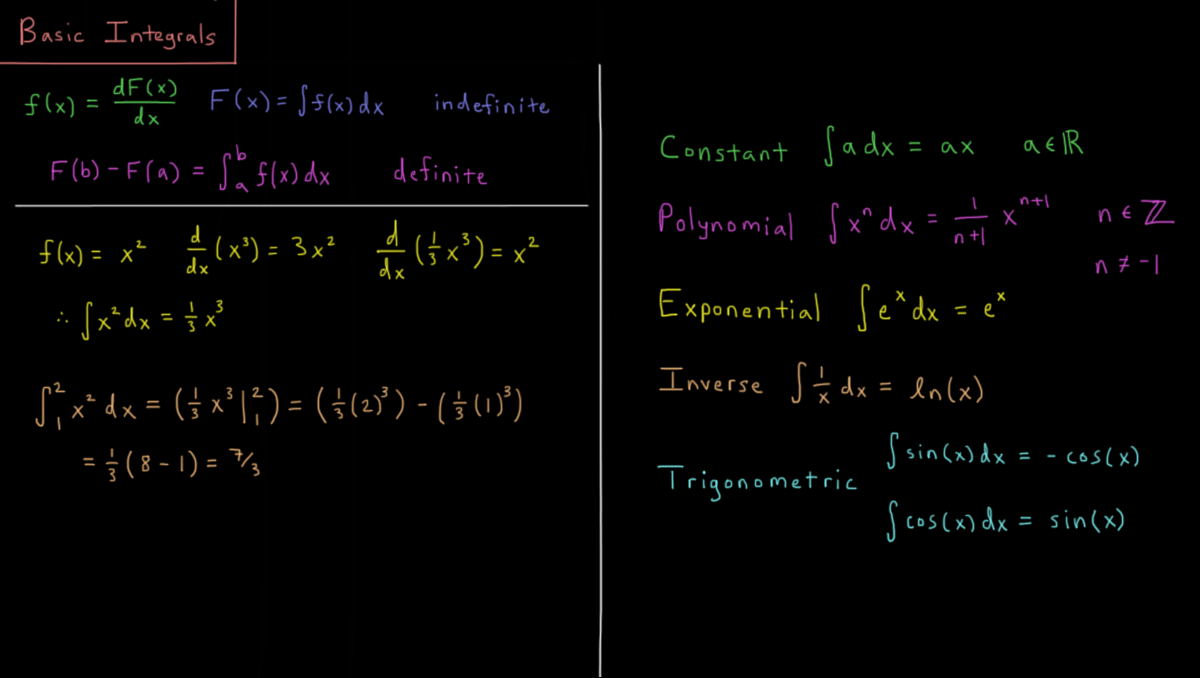 Basic Integrals
f(x) = dF(x)/dx F(x) = ∫f(x)dx indefinite
F(b) - F(a) = ∫_a^b f(x)dx definite
f(x) = x² d/dx (x³) = 3x² d/dx (1/3 x³) = x²
∴ ∫x²dx = 1/3 x³
∫_1^2 x² dx = (1/3 x³|_1^2) = (1/3(2)³) - (1/3(1)³)
= 1/3(8 - 1) = 7/3
Constant ∫a dx = ax a ∈ ℝ
Polynomial ∫xⁿdx = 1/(n+1) x^(n+1) n ∈ ℤ
n ≠ -1
Exponential ∫eˣdx = eˣ
Inverse ∫1/x dx = ln(x)
Trigonometric ∫sin(x)dx = -cos(x)
∫cos(x)dx = sin(x)